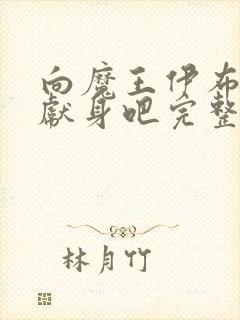 向魔王伊布
献身吧完整
林月竹